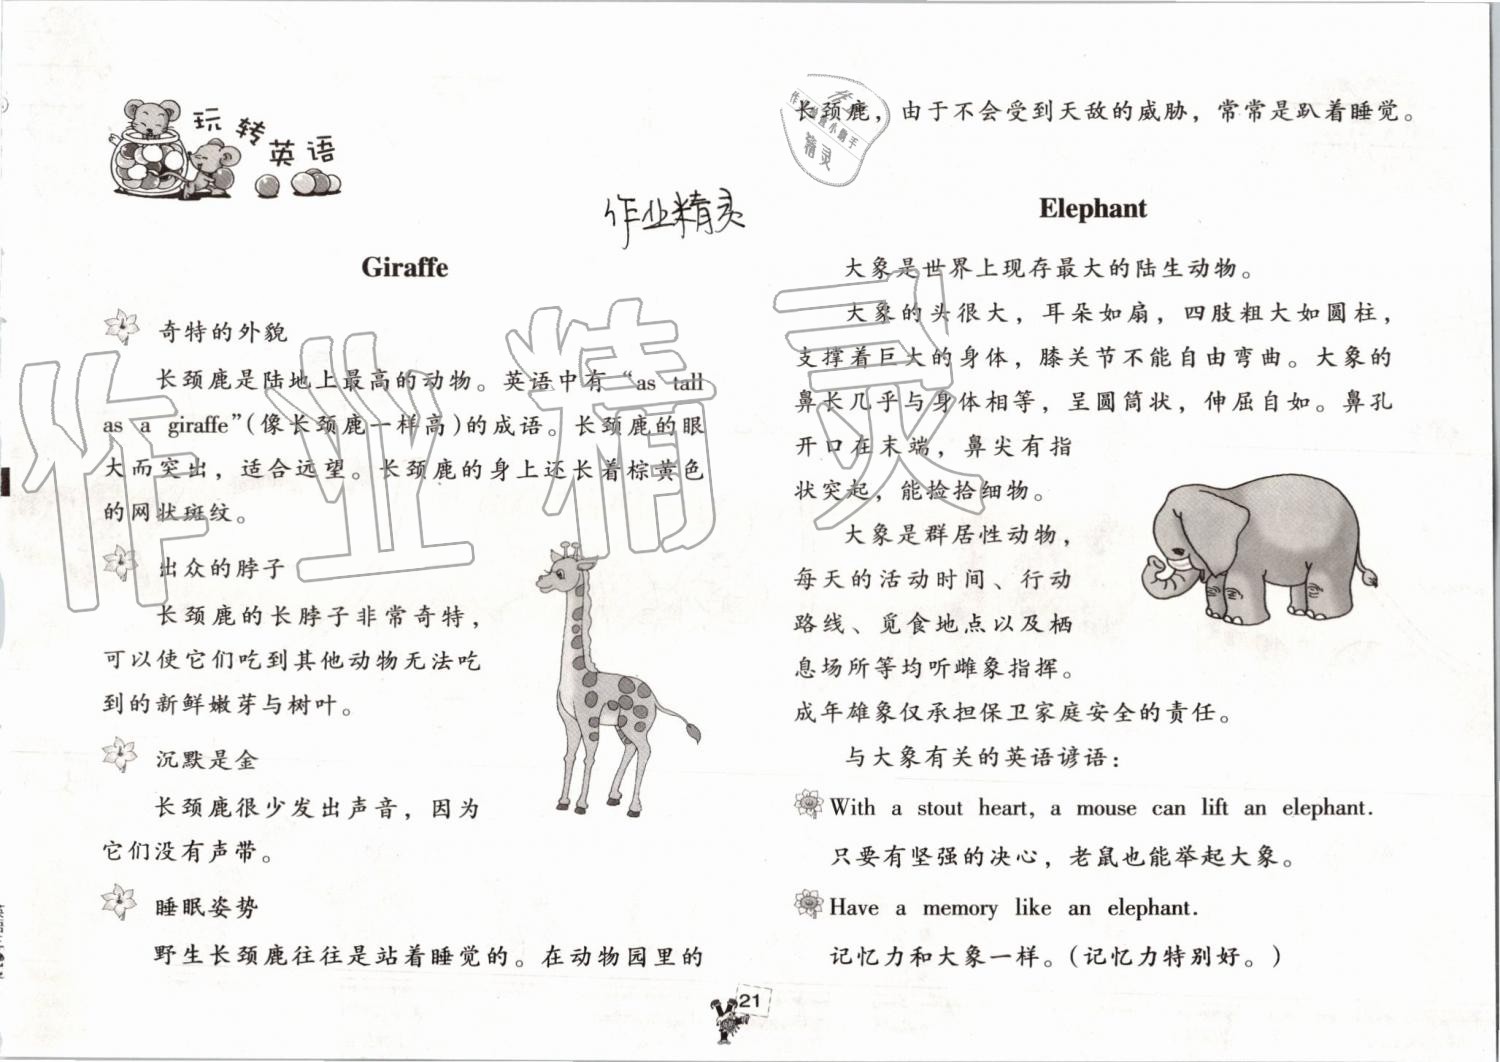 玩转英语
作业精灵
Giraffe
奇特的外貌
长颈鹿是陆地上最高的动物。英语中有“as tall
as a giraffe”(像长颈鹿一样高)的成语。长颈鹿的眼
大而突出，适合远望。长颈鹿的身上还长着棕黄色
的网状斑纹。
出众的脖子
长颈鹿的长脖子非常奇特，
可以使它们吃到其他动物无法吃
到的新鲜嫩芽与树叶。
沉默是金
长颈鹿很少发出声音，因为
它们没有声带。
睡眠姿势
野生长颈鹿往往是站着睡觉的。在动物园里的
长颈鹿，由于不会受到天敌的威胁，常常是趴着睡觉。
Elephant
大象是世界上现存最大的陆生动物。
大象的头很大，耳朵如扇，四肢粗大如圆柱，
支撑着巨大的身体，膝关节不能自由弯曲。大象的
鼻长几乎与身体相等，呈圆筒状，伸屈自如。鼻孔
开口在末端，鼻尖有指
状突起，能捡拾细物。
大象是群居性动物，
每天的活动时间、行动
路线、觅食地点以及栖
息场所等均听雌象指挥。
成年雄象仅承担保卫家庭安全的责任。
与大象有关的英语谚语：
With a stout heart, a mouse can lift an elephant.
只要有坚强的决心，老鼠也能举起大象。
Have a memory like an elephant.
记忆力和大象一样。(记忆力特别好。)
21
作业精灵